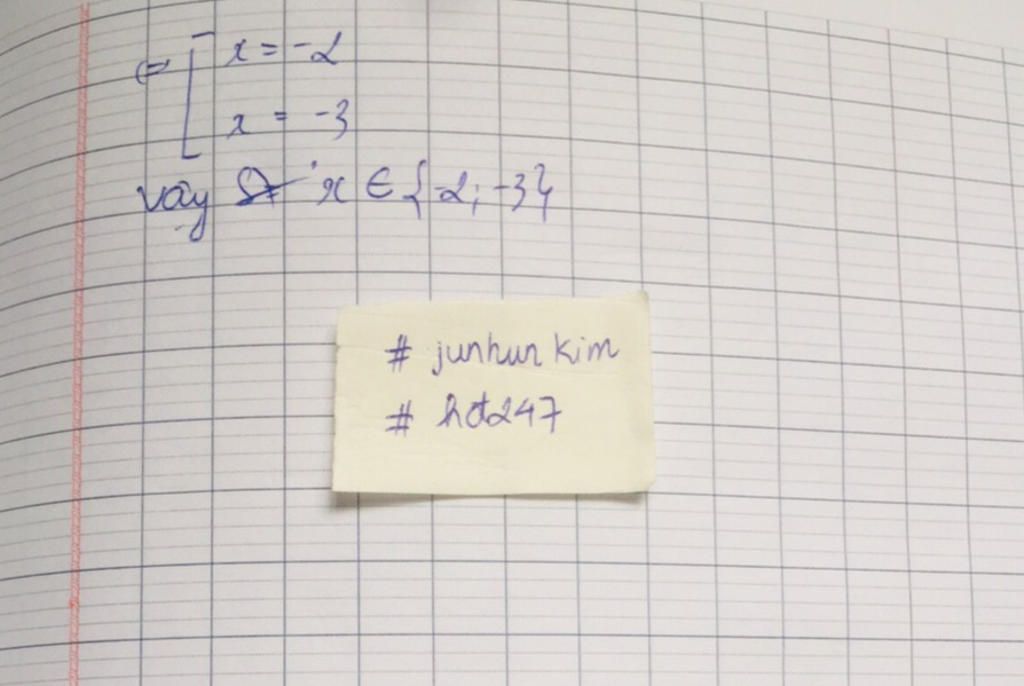 ⇔ [ x = -2
x = -3
vậy x ∈ {-2; -3}
# junhun kim
# hd247